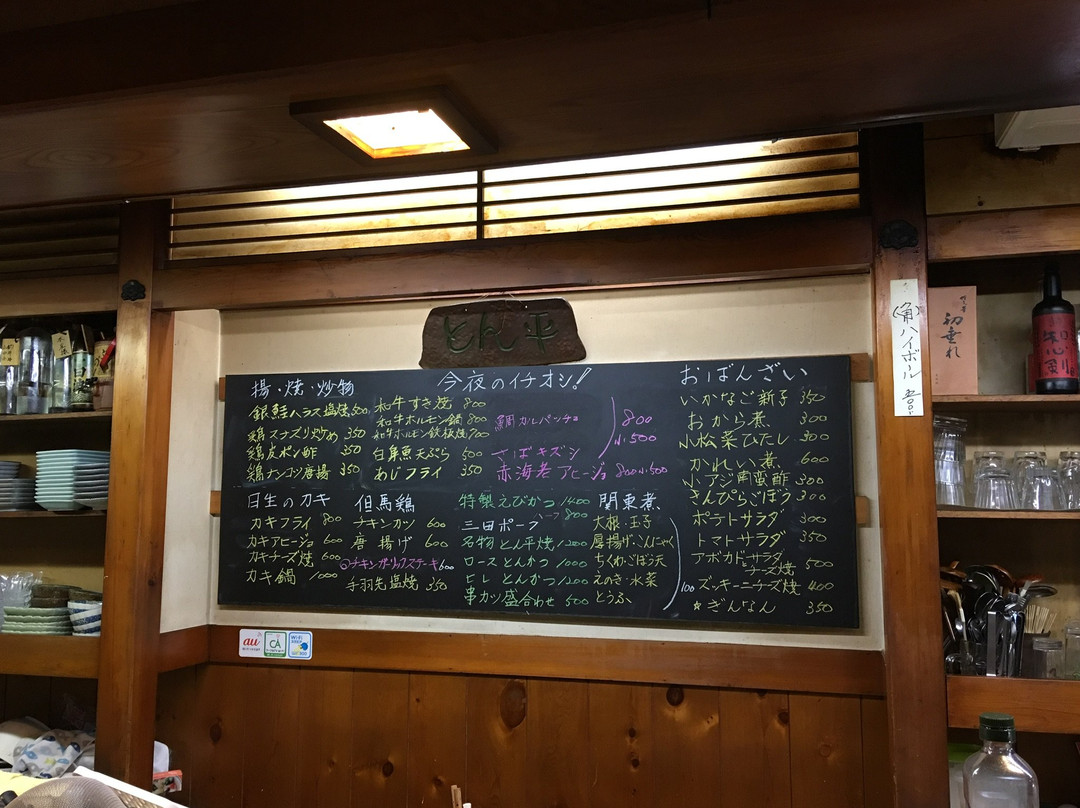 とん平
揚・焼・炒物
銀鮭ハラス塩焼 500
鶏スナズリ炒め 350
鶏皮ポン酢 350
鶏ナンコツ唐揚 350
今夜のイチオシ!
和牛すき焼 800
和牛ホルモン鍋 800
和牛ホルモン鉄板焼 700
白身魚天ぷら 500
あじフライ 350
鯛カルパッチョ
さばキズシ
800
小500
赤海老アヒージョ 800 小500
日生のカキ
カキフライ 800
カキアヒージョ 600
カキチーズ焼 600
カキ鍋 1000
但馬鶏
チキンカツ 600
唐揚げ 600
チキンガーリックステーキ 600
手羽先塩焼 350
特製えびかつ 1400
ハーフ 800
三田ポーク
名物とん平焼 1200
ロースとんかつ 1000
ヒレとんかつ 1200
串カツ盛合わせ 500
関東煮
大根・玉子
厚揚げ・こんにゃく
ちくわ・ごぼう天
えのき・水菜
とうふ
100
おばんざい
いかなご新子 350
おから煮 300
小松菜ひたし 300
かれい煮 600
小アジ南蛮酢 300
きんぴらごぼう 300
ポテトサラダ 300
トマトサラダ 350
アボカドサラダ
チーズ焼 500
ズッキーニチーズ焼 400
☆ぎんなん 350
(角)ハイボール
初垂れ
au
Wi-Fi